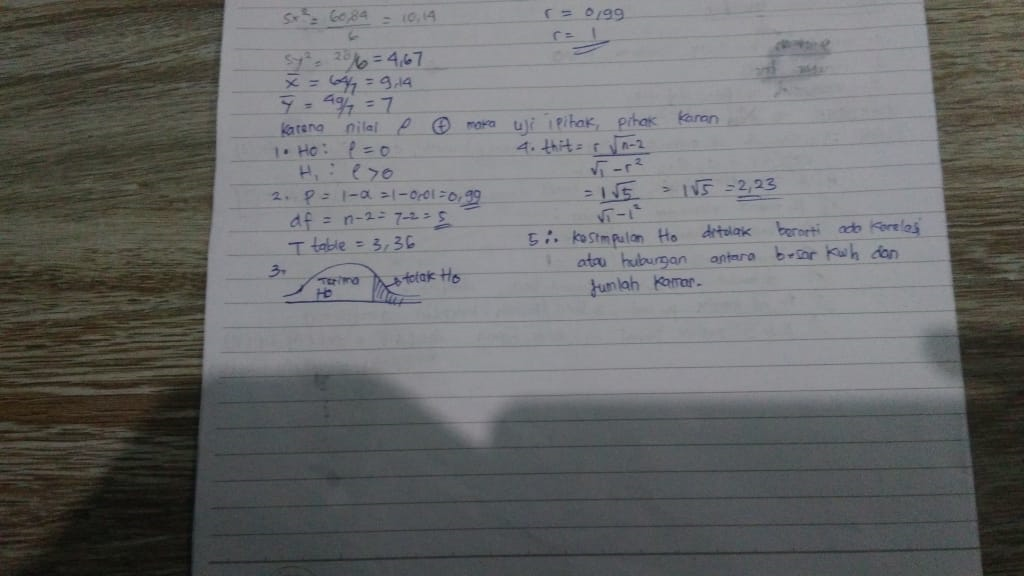 Sx² = 60,84/6 = 10,14
Sy² = 28/6 = 4,67
x̄ = 64/7 = 9,14
ȳ = 49/7 = 7
r = 0,99
r = 1
Karena nilai ρ ⊕ maka uji 1 pihak, pihak kanan
1. H0 : ρ = 0
H1 : ρ > 0
2. P = 1-α = 1-0,01 = 0,99
df = n-2 = 7-2 = 5
T table = 3,36
3.
Terima H0
tolak H0
4. thit = r √n-2 / √1-r²
= 1√5 / √1-1² = 1√5 = 2,23
5 ∴ Kesimpulan H0 ditolak berarti ada korelasi
atau hubungan antara besar Kwh dan
Jumlah kamar.